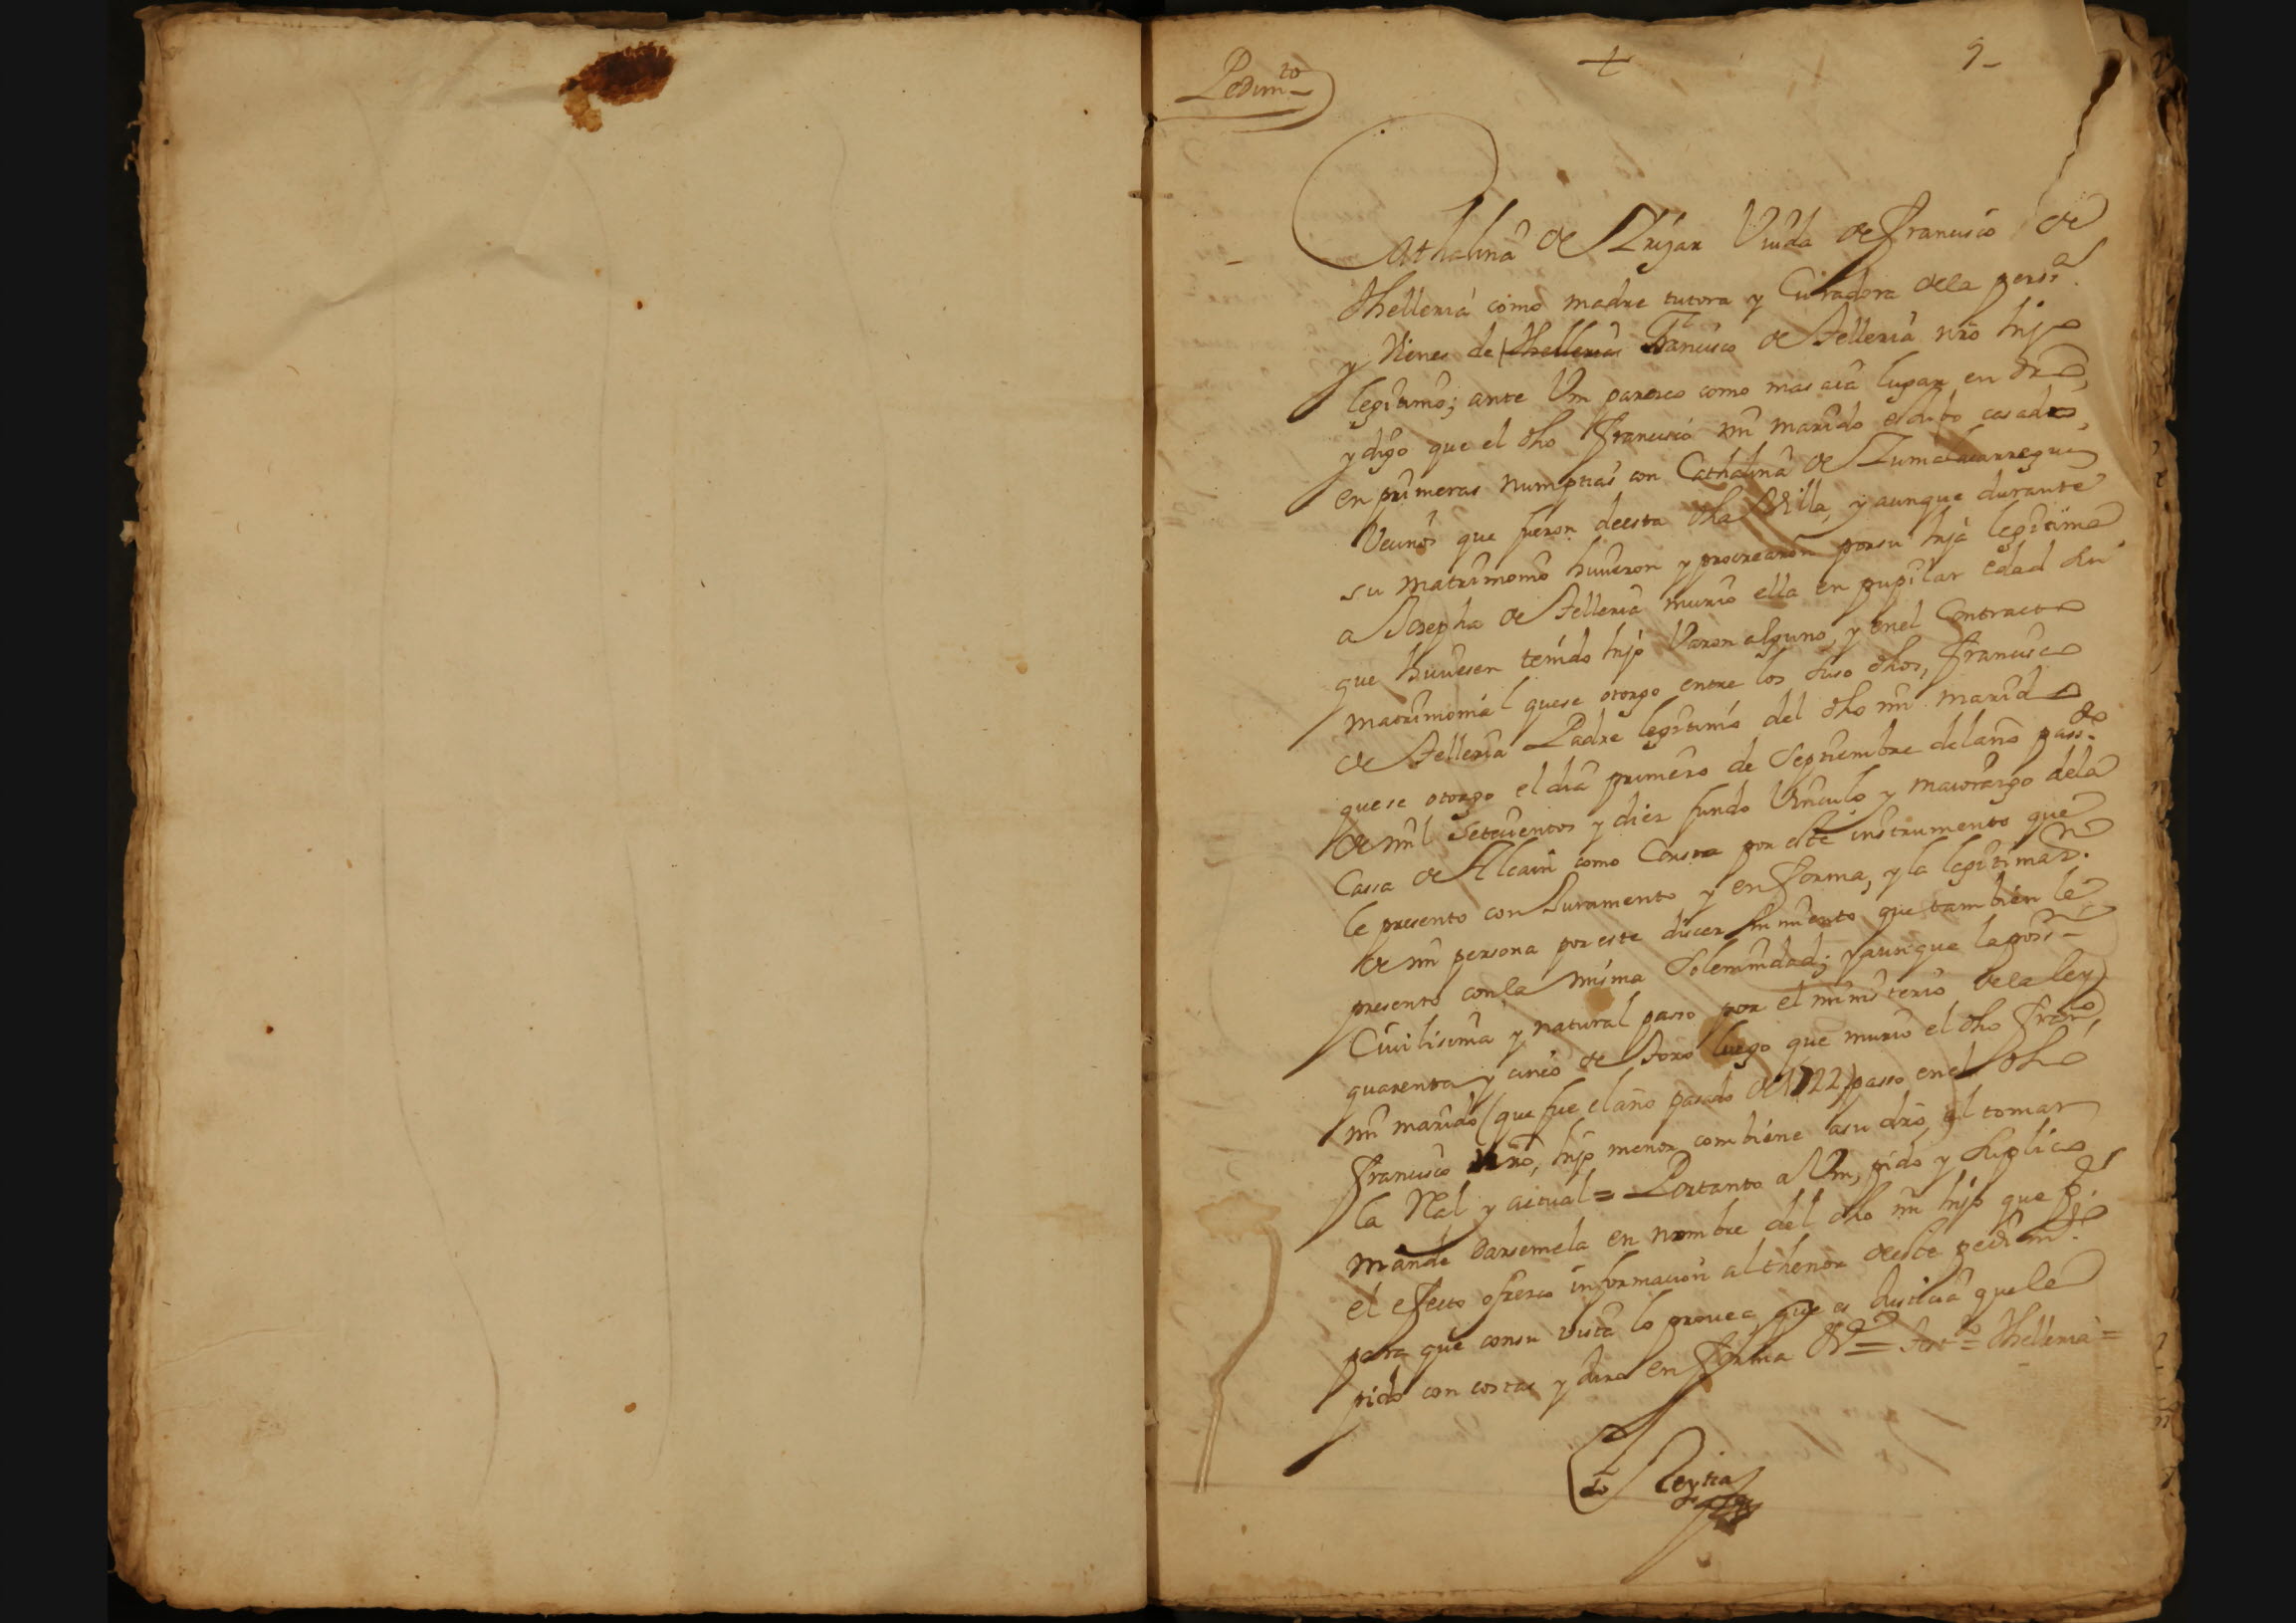 Pedim.to
+
9-
Cathalina de Zrijar Viuda de Francisco de
Thelleria como madre tutora y Curadora dela pers.a
y Vienes de Thelleria Francisco de Telleria nro hijo
legitimo; ante Vm paresco como mas aia lugar en dro,
y digo que el dho Francisco mi marido estubo casado
en primeras numptias con Cathalina de Zumalacarregui
Vecinos que fueron deesta dha Villa, y aunque durante
su matrimonio huvieron y procrearon porsu hija legitima
a Josepha de Telleria murio ella en pupilar edad sin
que huviesen tenido hijo Varon alguno, y enel Contracto
matrimonial quese otorgo entre los suso dhos, Francisco
de Telleria Padre legitimo del dho mi marido
quese otorgo el dia primero de Septiembre delaño pass.do
de mil Setecientos y diez fundo Vinculo y maiorazgo dela
Cassa de Alcain como Consta por este instrumento que
le presento con Juramento y en forma, y la legitimaz.n
de mi persona por este discernimiento que tambien le
presento conla misma Solemnidad; y aunque laposs.n
Civilisima y natural passo por el ministerio dela ley
quarenta y cinco de Toro luego que murio el dho Fran.co
mi marido (que fue elaño pasado de 1722) passo enel dho
Francisco nro, hijo menor combiene asu dro, el tomar
la Real y actual = Portanto a Vm, pido y suplico
mande darsemela en nombre del dho mi hijo que p.a
el efecto ofresco informacion althenor deeste pedim.to
para que consu vista lo provea, que es Justicia quele
pido con costas y Juro en forma V.a = Test.do = Thelleria =
Leytia